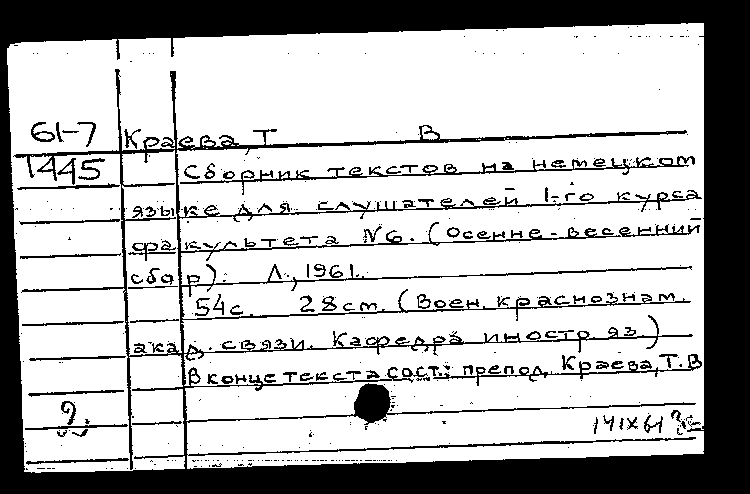 61-7
1445
Краева, Т В
Сборник текстов на немецком
языке для слушателей 1-го курса
факультета №6. (Осенне-весенний
сбор). Л., 1961.
54с. 28см. (Воен. краснознам.
акад. связи. Кафедра иностр. яз.)
В конце текста сост.: препод. Краева, Т.В
14IX61